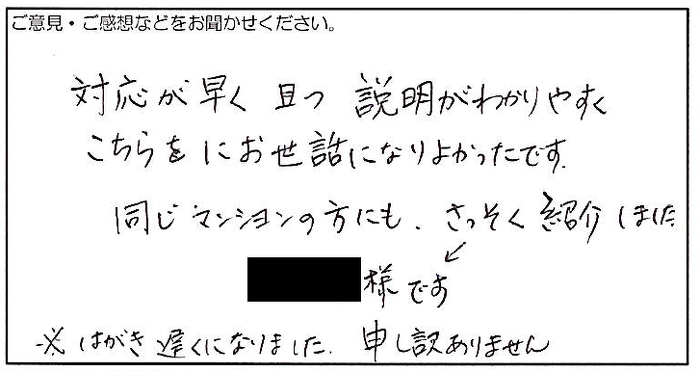 ご意見・ご感想などをお聞かせください。
対応が早く 且つ 説明がわかりやすく
こちらをにお世話になりよかったです.
同じマンションの方にも、さっそく紹介しました
様です
※ はがき遅くになりました. 申し訳ありません